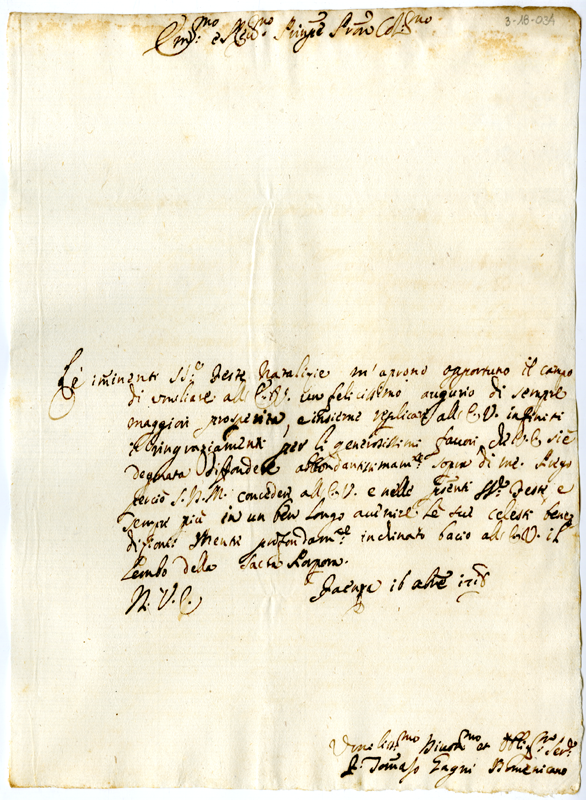 3-18-034
Em.mo e Rev.mo Principe Pron Col.mo
Le iminenti SS.e Feste Natalizie m'aprono opportuno il campo
di umiliare all'E.V. un felicissimo augurio di sempre
maggiori prosperità, e insieme replicare all'E.V. infiniti
ringraziamenti per li generosissimi favori, che V.E. si è
degnata diffondere abbondantissimam.te sopra di me. Priego
perciò S.D.M. concedere all'E.V. e nelle presenti SS.e Feste e
sempre più in un ben longo avenire le sue celesti bene-
dizioni Mentre profondam.te inclinato bacio all'E.V. il
Lembo della Sacra Porpora.
Faenza 16 Xbre
D. V. E.
Umilis.mo Divotis.mo et Obblig.mo Ser.e
F. Tomaso Domenicano